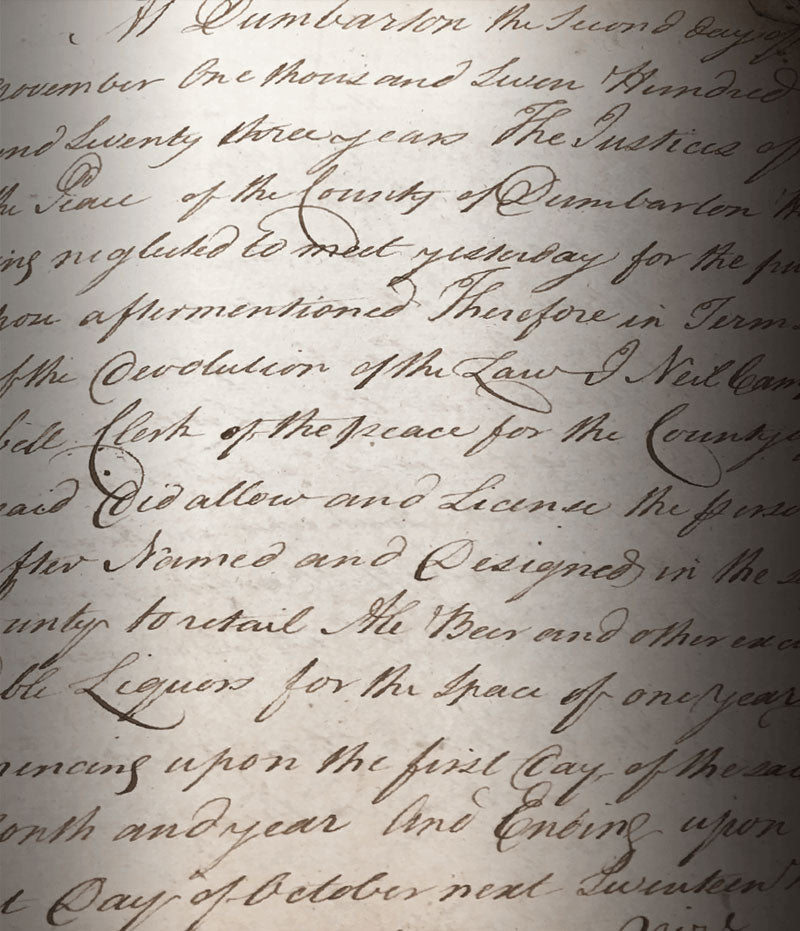 At Dumbarton the Second day of
november One thousand Seven Hundred
and Seventy three years The Justices of
the Peace of the County of Dumbarton
ing neglected to meet yesterday for the pur
pose aftermentioned Therefore in Terms
of the Devolution of the Law I Neil Camp
bell Clerk of the peace for the County
said Did allow and License the perso
after Named and Designed in the s
ounty to retail Ale Beer and other exc
ble Liquors for the space of one year
mencing upon the first Day of the said
onth and year And Ending upon
t Day of October next Seventeen